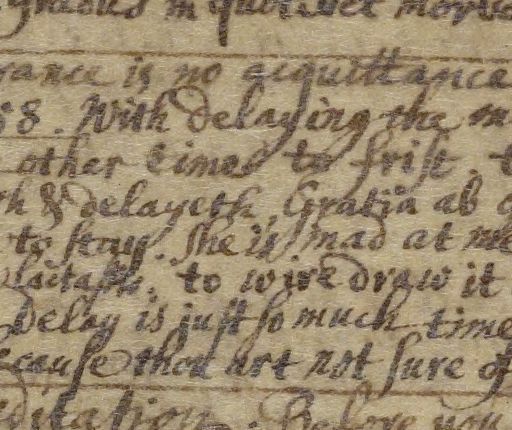 gradus in quot
rance is no acquittance
58. With delaying the m
other times to frist. t
th & delayeth. Gratia ab o
to stay. She is mad at me
to wiredraw it
Delay is just so much time
ecause thou art not sure of
ditation. Before you